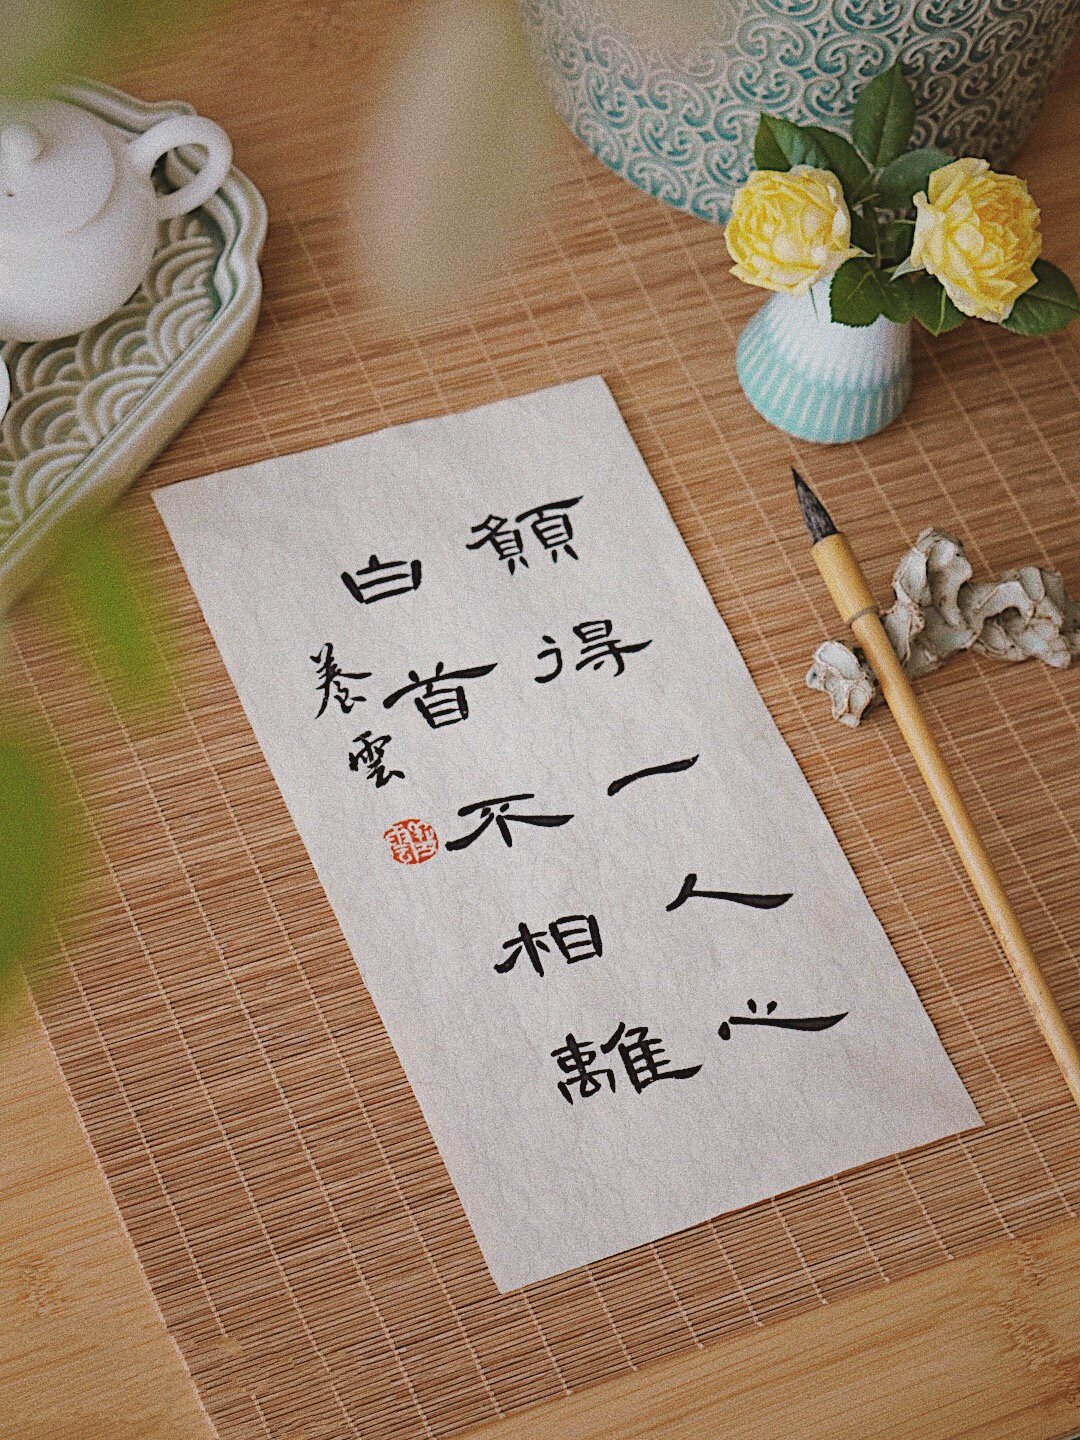 願得一人心
白首不相離
養雲